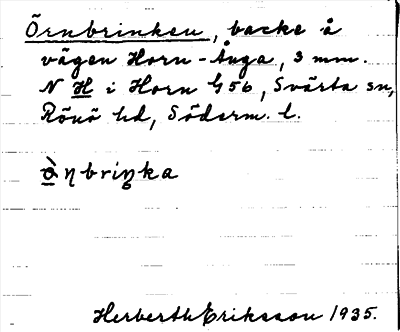 Örnbrinken, backe å
vägen Horn - Ånga, 3 mm.
N H i Horn G56, Svärta sn,
Rönö hd, Söderm. l.
ὸ̱ƞbriŋka
Herberth Eriksson 1935.